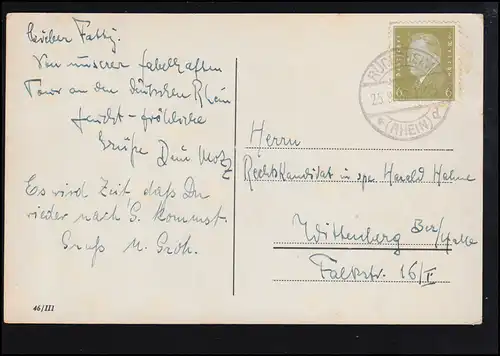 Lieber Fatty.
Von unserer fabelhaften
Tour an den deutschen Rhein
feucht-fröhliche
Grüße Dein
Es wird Zeit daß Du
wieder nach G. kommst.
Gruß
46/III
DEUTSCHES REICH
6 6
RÜDESHEIM
23.
* (RHEIN) d
Herrn
Rechtskandidat in spe. Harald Hahne
Wittenberg Bez/Halle
Falkstr. 16/I